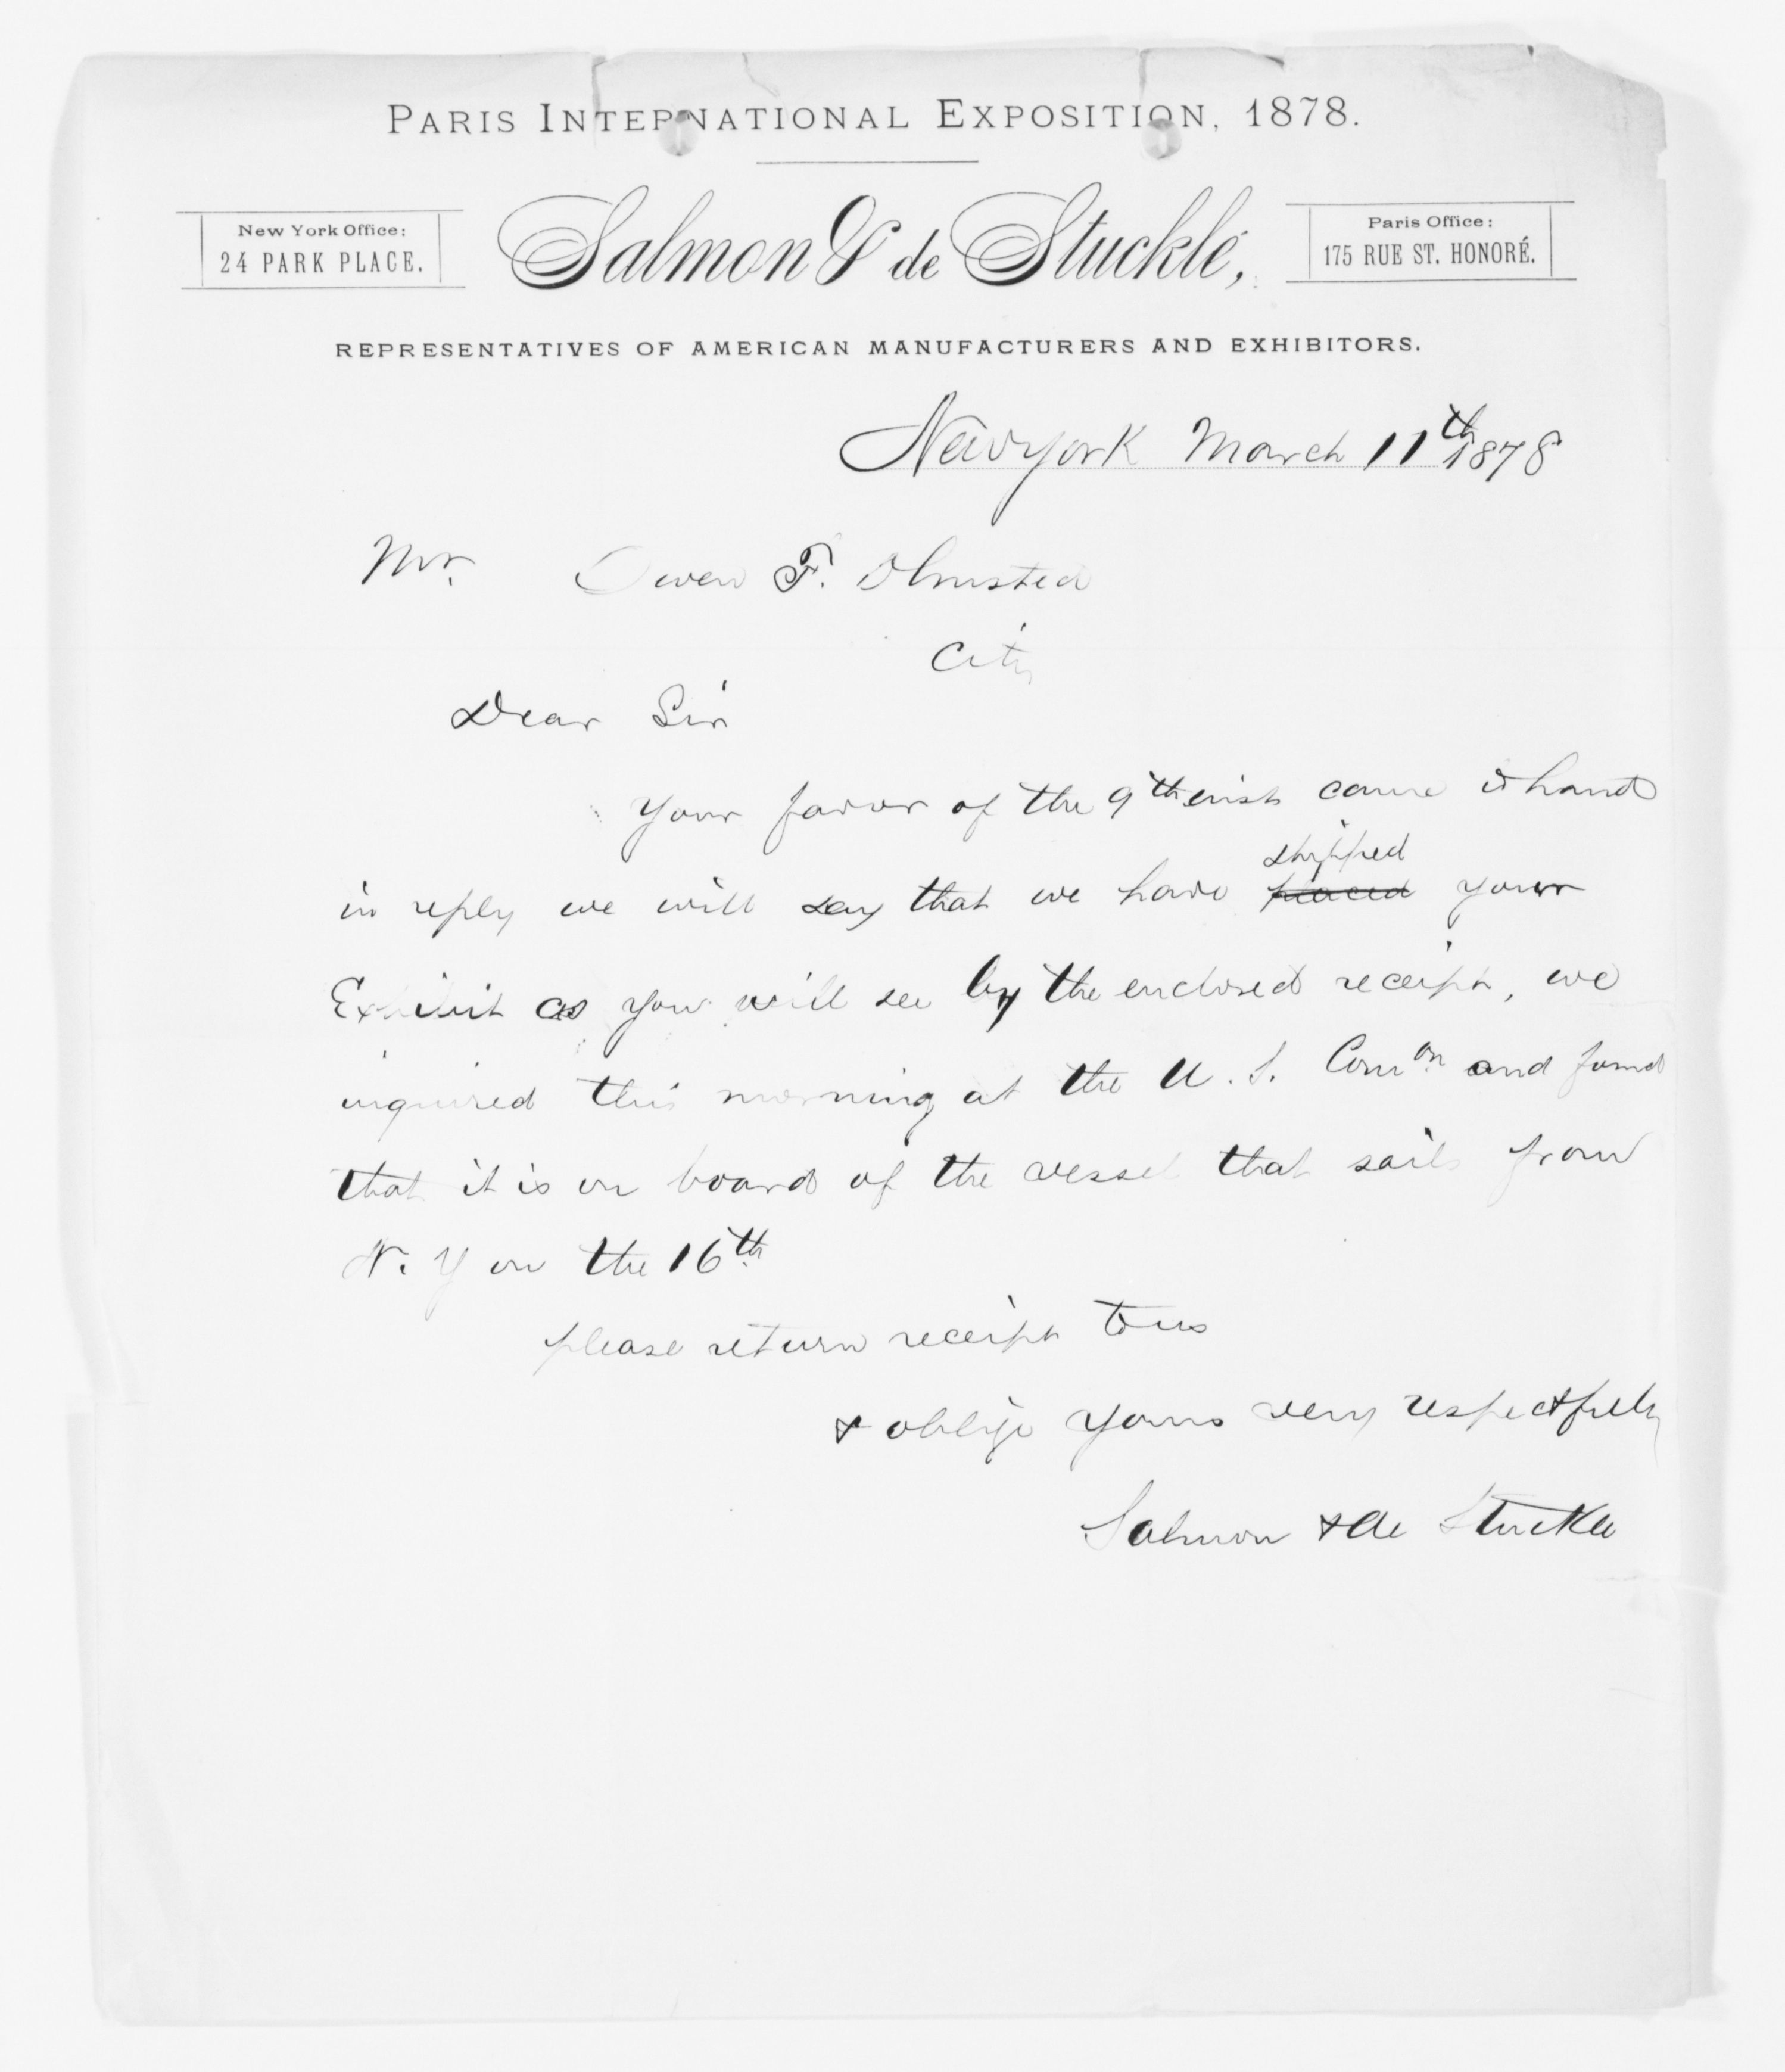 PARIS INTERNATIONAL EXPOSITION, 1878.
New York Office:
24 PARK PLACE.
Salmon & de Stucklé,
Paris Office:
175 RUE ST. HONORÉ.
REPRESENTATIVES OF AMERICAN MANUFACTURERS AND EXHIBITORS.
New York March 11th 1878
Mr. Owen F. Olmsted
City
Dear Sir
Your favor of the 9th inst came to hand
shipped
in reply we will say that we have placed your
Exhibit as you will see by the enclosed receipt, we
inquired this morning at the U. S. Comon and found
that it is on board of the vessel that sails from
N. Y on the 16th
please return receipt to us
& oblige yours very respectfully
Salmon & de Stuckle